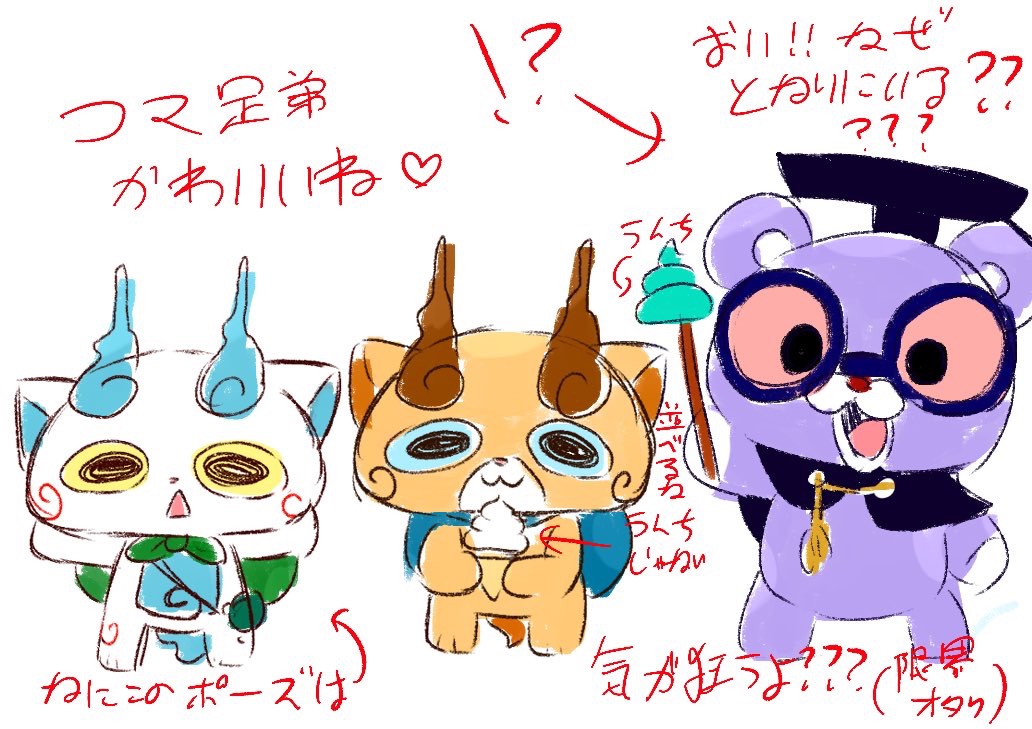 コマ兄弟
かわいいね♡
!?
おい!!なぜ
となりにいる??
???
うんち
並べるな
うんち
じゃねい
なにこのポーズは
気が狂うよ???(限界
オタク)